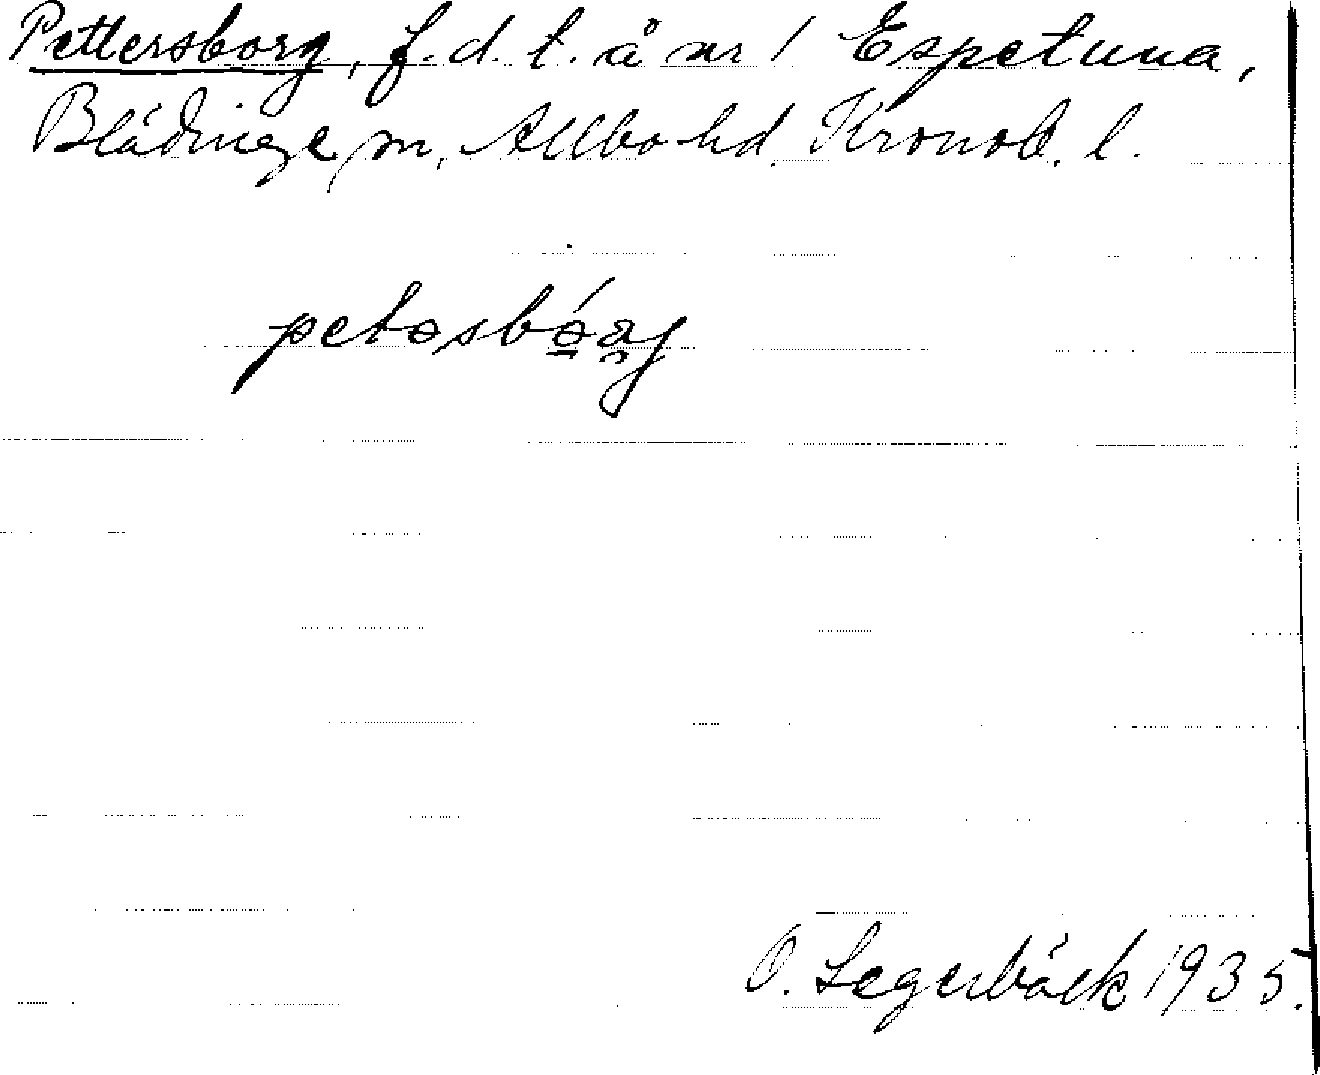 Pettersborg, f. d. t. å nr 1 Espetuna,
Blädinge sn, Allbo hd. Kronob. l.
petəsbo̱ŕ̥j
O. Segerbäck 1935.